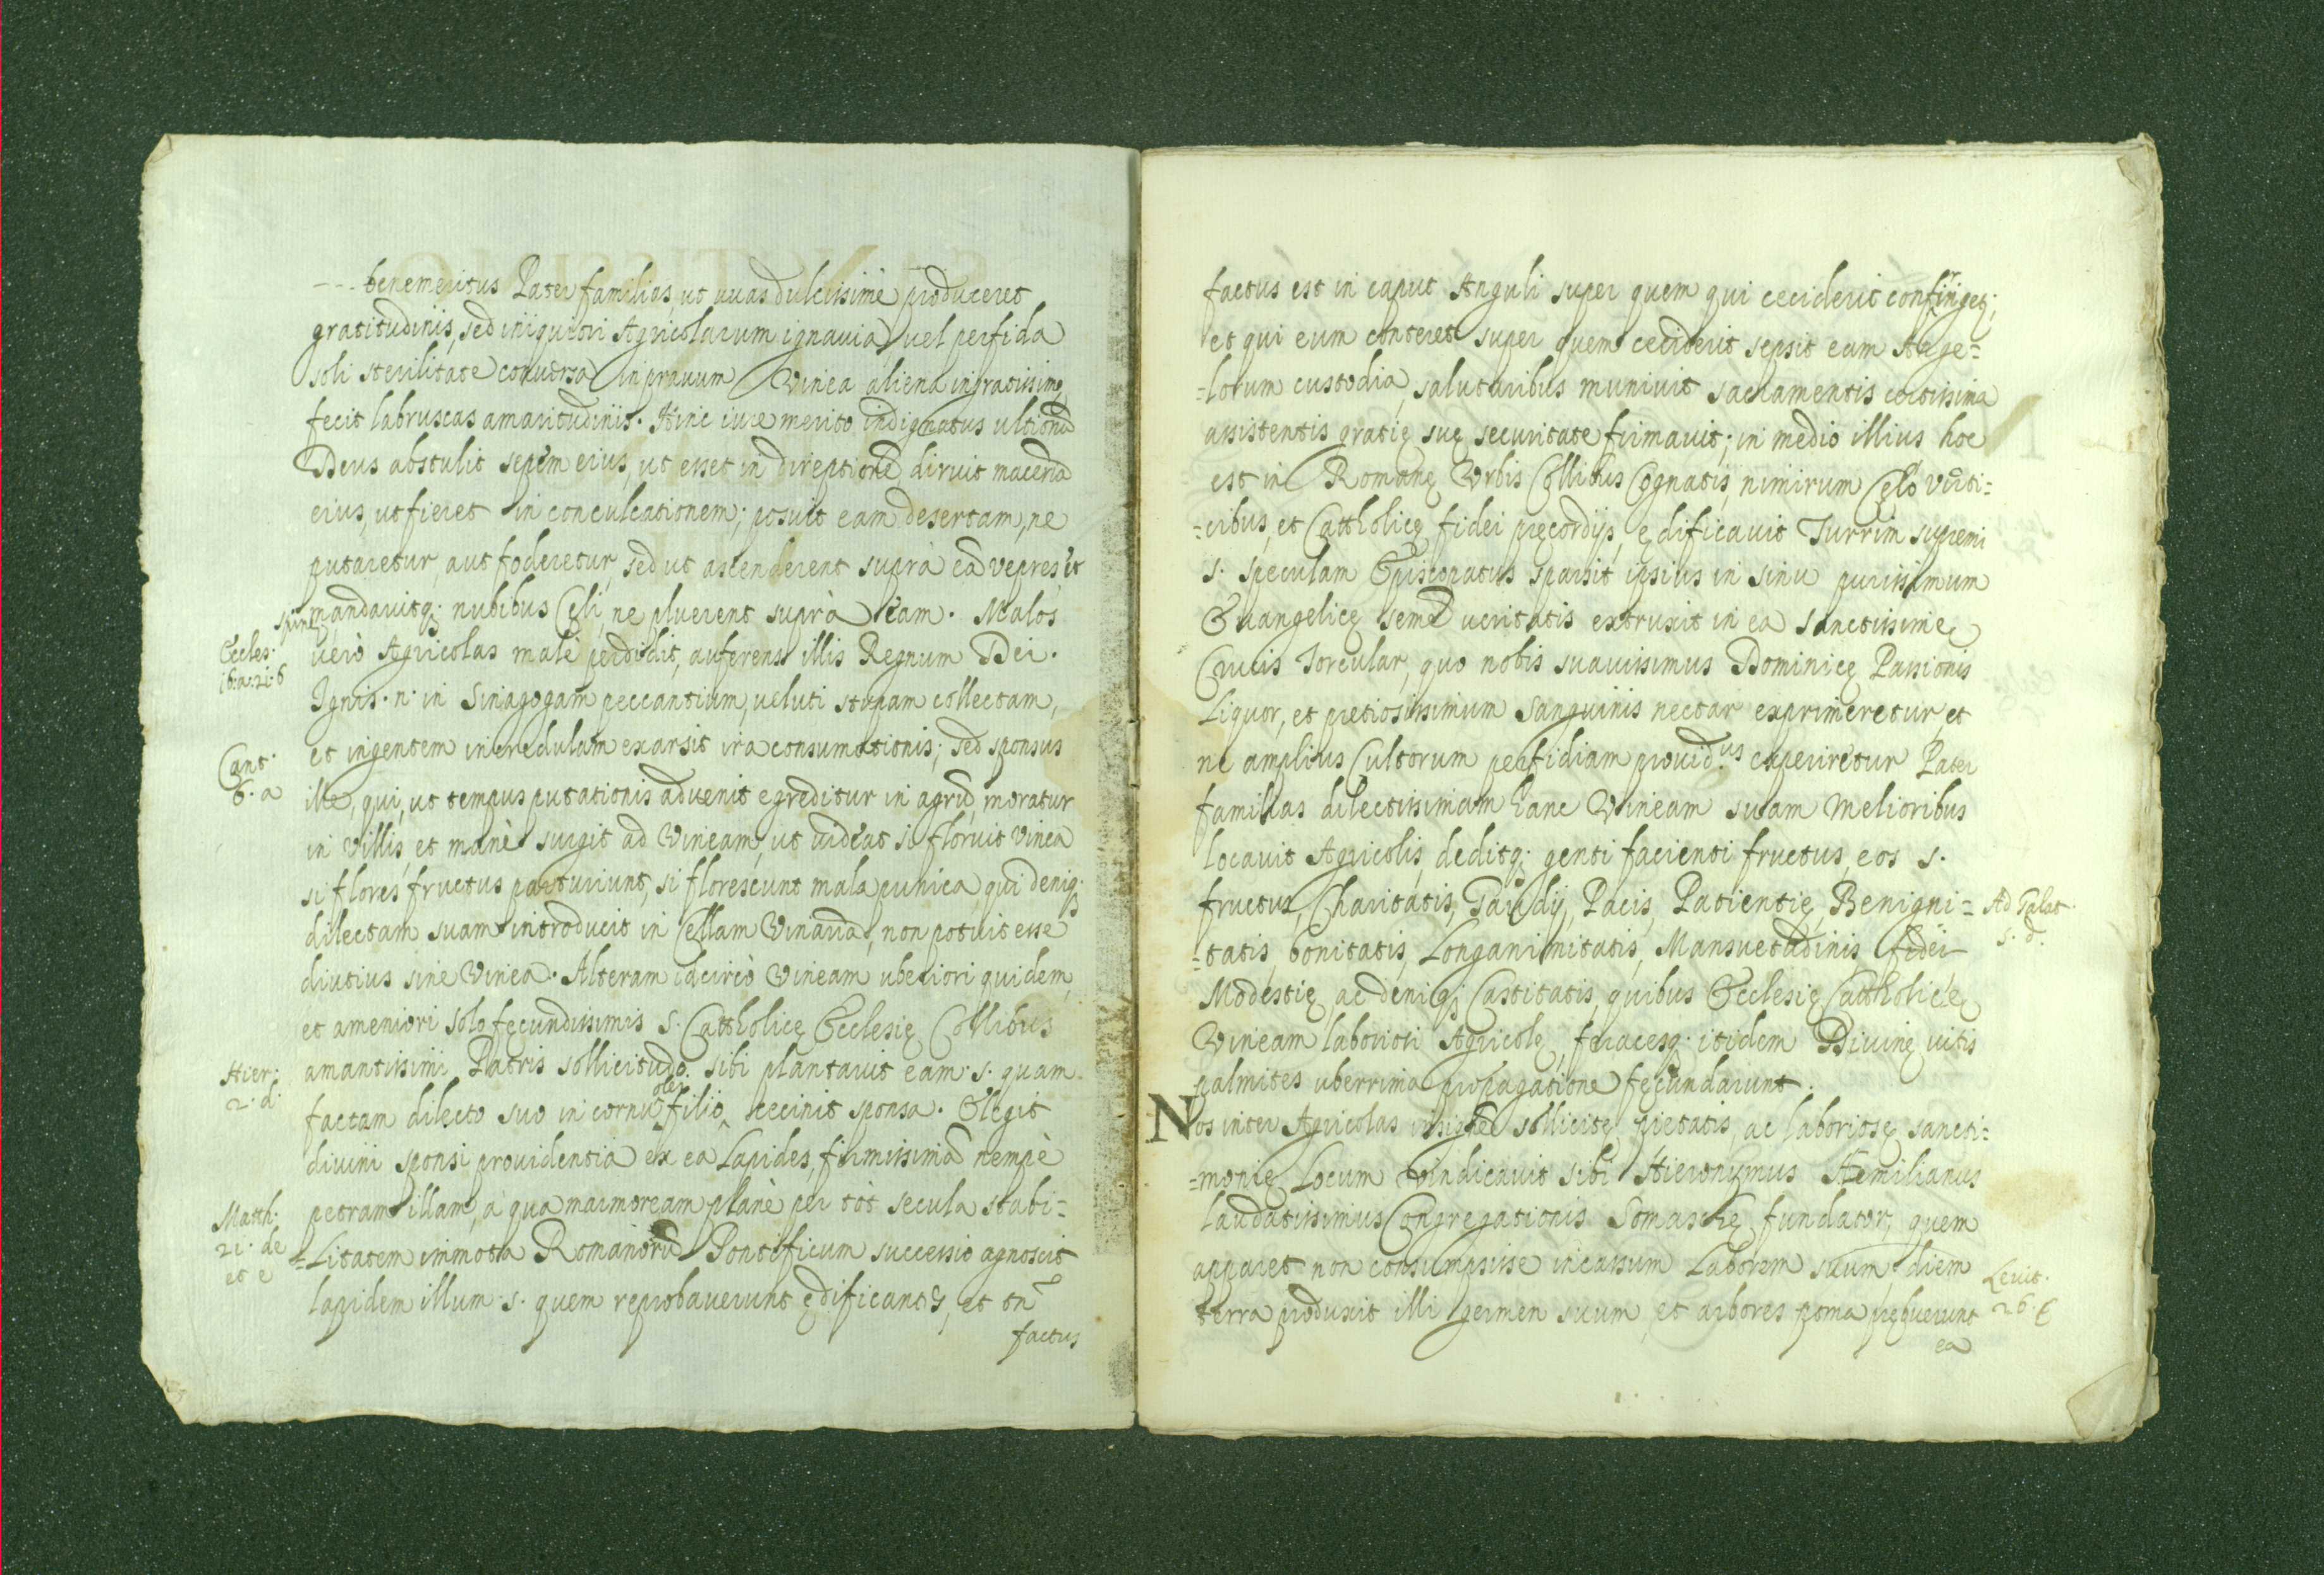 --- benemeritus Pater familias, ut uuas dulcissimè produceret
gratitudinis, sed iniquiori Agricolarum ignauia, uel perfida
soli sterilitate conuersa in prauum Vinea aliena ingratissimę
fecit labruscas amaritudinis. Hinc iure merito indignatus ultionũ
Deus abstulit sepem eius, ut esset in direptionẽ, diruit maceriã
eius, ut fieret in conculcationem; posuit eam desertam, ne
putaretur, aut foderetur, sed ut ascenderent suprà eã vepres et
spinę mandauitq; nubibus Cęli, ne pluerent suprà eam. Malos
Eccles.
16. a. 21. 6
uerò Agricolas malè perdidit, auferens illis Regnum Dei.
Ignis. n. in Sinagogam peccantium, ueluti stupam collectam,
et ingentem incredulam exarsit ira consumationis; sed sponsus
Cant.
6. a
ille, qui, ut tempus putationis aduenit egreditur in agrũ, moratur
in Villis, et manè surgit ad Vineam, ut uideat si floruit Vinea
si flores fructus parturiunt, si florescunt mala punica, qui deniq;
dilectam suam introducit in Cellam Vinariã, non potuit esse
diutius sine Vinea. Alteram idcircò Vineam uberiori quidem,
et ameniori solo fęcundissimis s. Cattholicę Ecclesię Collibus
amantissimi Patris sollicitudo sibi plantauit eam. s. quam
Hier:
2. d.
factam dilecto suo in cornu filio olei cecinit sponsa. Elegit
diuini sponsi prouidentia ex ea Lapides, firmissimã nempè
petram illam, à qua marmoream planè per tòt secula stabi=
Matth.
21. de
et e
=Litatem immota Romanorũ Pontificum successio agnoscit
lapidem illum. s. quem reprobauerunt ędificantes, et tñ
factus
factus est in caput Anguli super quem qui ceciderit confringet;
et qui eum conteret super quem ceciderit sepsit eam Ange=
=lorum custodia, salutaribus muniuit sacramentis certissima
assistentis gratię suę securitate firmauit; in medio illius hoc
est in Romanę Vrbis Collibus Cognatis, nimirum Cęlo Verti=
=cibus, et Cattholicę fidei pręcordijs, ędificauit Turrim supremi
s. speculam Episcopatus sparsit ipsius in sinu purissimum
Euangelicę semẽ ueritatis extruxit in ea sanctissimę
Crucis Torcular, quo nobis suauissimus Dominicę Passionis
Liquor, et pretiosissimum Sanguinis nectar exprimeretur, et
ne amplius Cultorum perfidiam prouid.us experiretur Pater
familias dilectissimam hanc Vineam suam melioribus
locauit Agricolis, deditq; genti facienti fructus, eos s.
fructus, Charitatis, Gaudij, Pacis, Patientię, Benigni=
Ad Galat.
5. d.
=tatis, bonitatis, Longanimitatis, Mansuetudinis, fidei
Modestię, ac deniq; Castitatis, quibus Ecclesię Cattholicę
Vineam laboriosi Agricolę, feracesq; itidem Diuinę uitis
palmites uberrima propagatione fecundarunt.
Nos inter Agricolas insignẽ sollicitę pietatis, ac laboriosę sancti=
=monię Locum Vindicauit sibi Hieronymus Aemilianus
laudatissimus Congregationis Somaschę fundator, quem
apparet non consumpsisse incassum Laborem suum. diem
terra produxit illi germen suum, et arbores poma prębuerunt
Leuit.
26. E
ea